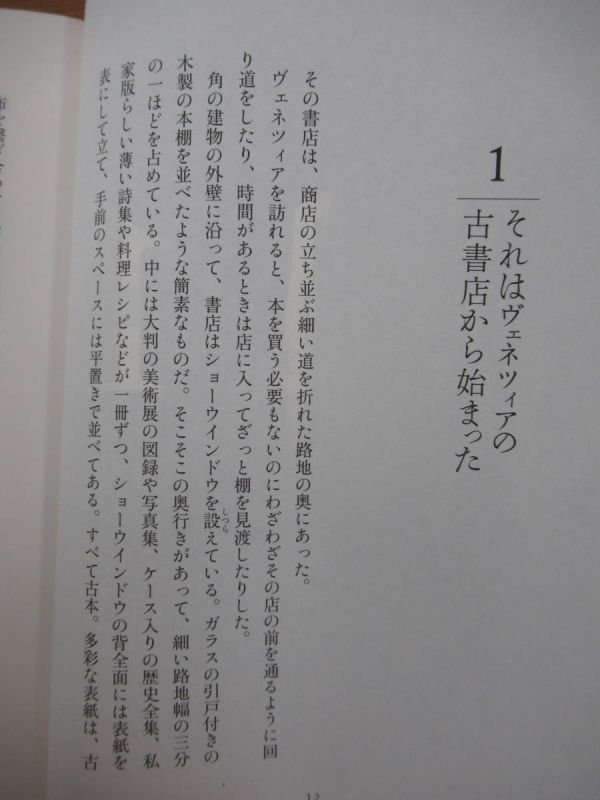 1
それはヴェネツィアの
古書店から始まった
その書店は、商店の立ち並ぶ細い道を折れた路地の奥にあった。
ヴェネツィアを訪れると、本を買う必要もないのにわざわざその店の前を通るように回
り道をしたり、時間があるときは店に入ってざっと棚を見渡したりした。
角の建物の外壁に沿って、書店はショーウインドウを設えている。ガラスの引戸付きの
しつら
木製の本棚を並べたような簡素なものだ。そこそこの奥行きがあって、細い路地幅の三分
の一ほどを占めている。中には大判の美術展の図録や写真集、ケース入りの歴史全集、私
家版らしい薄い詩集や料理レシピなどが一冊ずつ、ショーウインドウの背全面には表紙を
表にして立て、手前のスペースには平置きで並べてある。すべて古本。多彩な表紙は、古